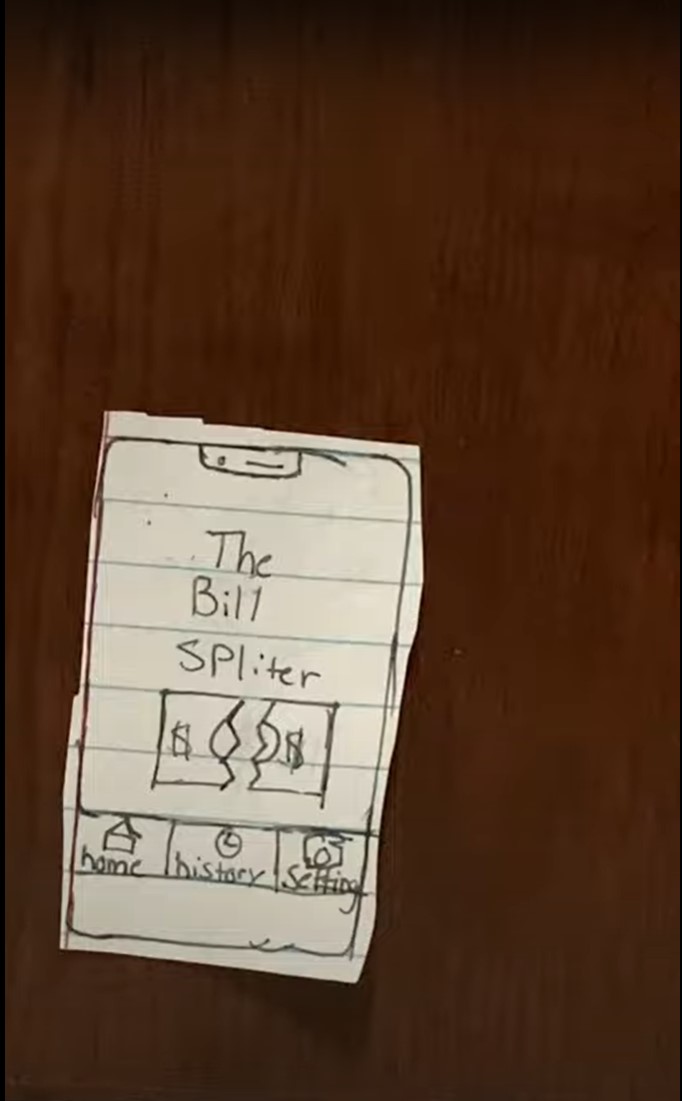 The
Bill
SPliter
$ $
home history setting